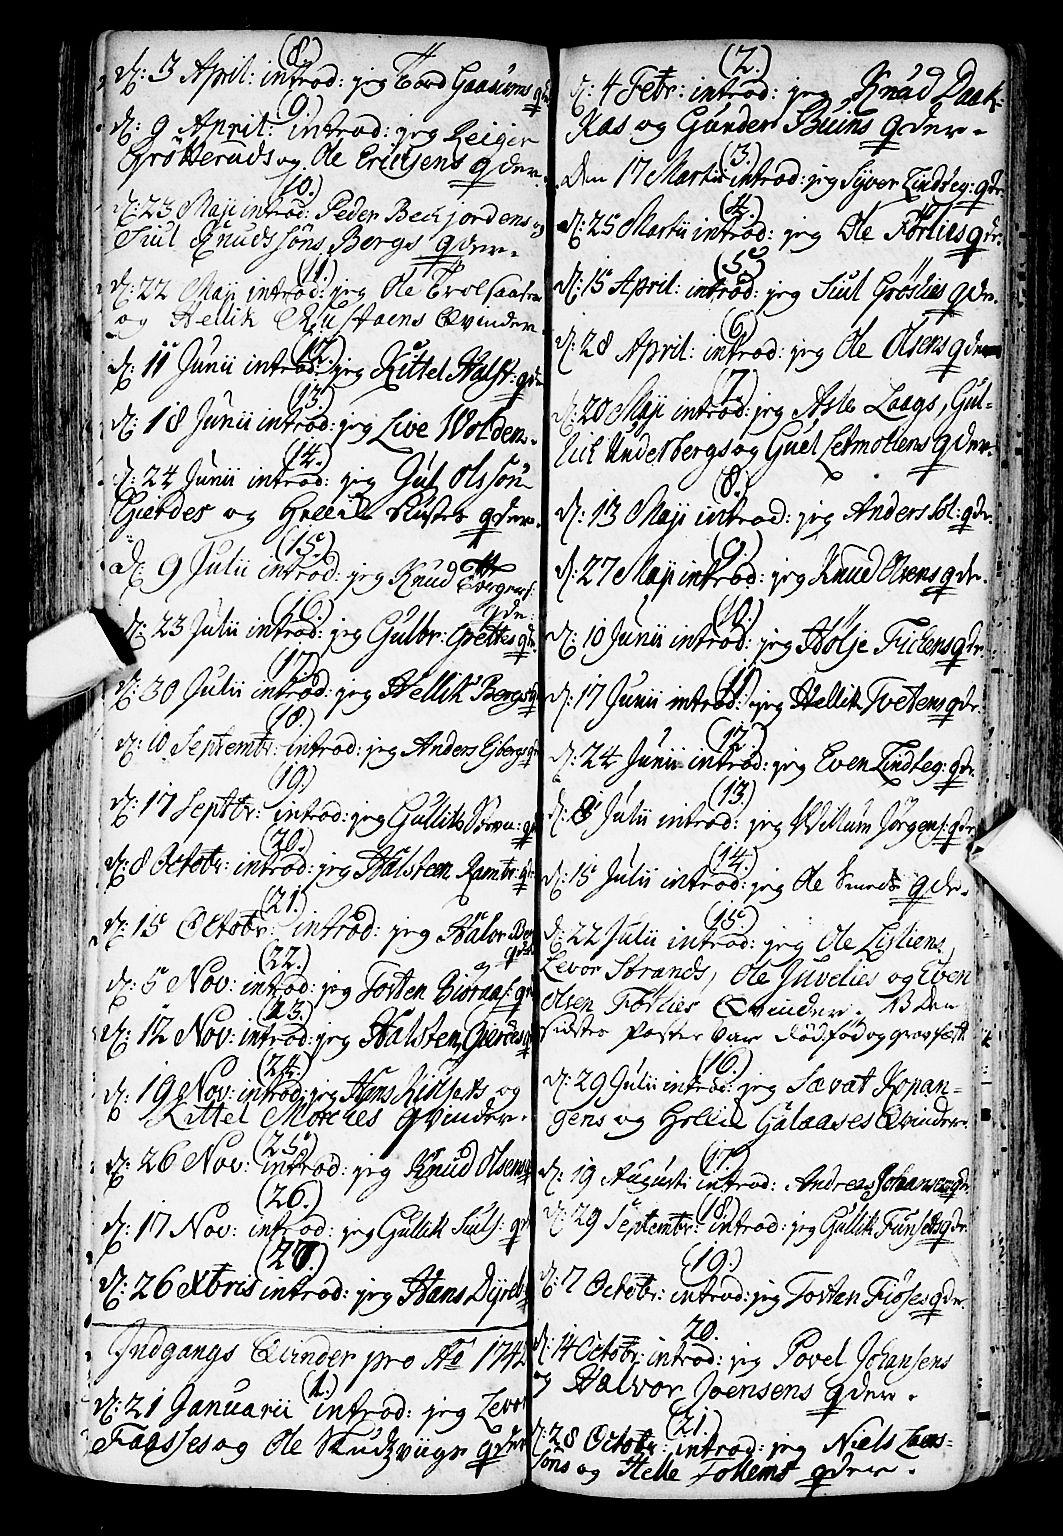 (8.)
d: 3 April: introd: jeg Tord Gaasums qd
(9.)
d: 9 April: introd: jeg Reiger
Grøtteruds og Ole Erichsens qder.
(10.)
d: 23 Maji introd: Peder Beckjordens og
Siul Knudssøns Bergs qder.
(11.)
d: 22 Maji introd: jeg Ole Trolsaasen
og Hellik Qvinder
(12.)
d: 11 Junii introd: jeg Kittel Halst: qd
(13.)
d: 18 Junii introd: jeg Live Wolden.
(14.)
d: 24 Junii introd: jeg Gul Olssøn
Gierdes og Hellik Rustes qder.
(15.)
d: 9 Julii introd: jeg Knud Torgers:
qde:
(16.)
d: 23 Julii introd: jeg Gulbr: Grettes qd
(17.)
d: 30 Julii introd: jeg Hellik Bergs qd
(18.)
d: 10 Septembr: introd: jeg Anders Ejbergs qd
(19.)
d: 17 Septbr: introd: jeg Gulliks qd
(20.)
d: 8 Octobr: introd: jeg Halsten Rambr: qd
(21.)
d: 15 Octobr: introd: jeg Halvor
qde
(22.)
d: 5 Nov: introd: jeg Tosten Biøraas: qd
(23.)
d: 12 Nov: introd: jeg Halsten Gierdes qd
(24.)
d: 19 Nov: introd: jeg Hans og
Kittel Moenes qvinder.
(25.)
d: 26 Nov: introd: jeg Knud Olsens qd
(26.)
d: 17 Nov: introd: jeg Gullik Siuls: qd
(27.)
d: 26 Xbris introd: jeg Hans
Indgangs Qvinder pro Aõ 1742
(1.)
d: 21 Januarii introd: jeg Levor
Faasses og Ole Skudzviigs qder
(2.)
d: 4 Febr: introd: jeg Knud Daak-
Kas og Gunder Buins qder.
(3.)
Den 17 Martii introd: jeg Syver Lindteg: qde
(4.)
d: 25 Martii introd: jeg Ole Førlies qd.
(5.)
d: 15 April: introd: jeg Siul Grøslies qde.
(6.)
d: 28 April: introd: jeg Ole Olsens qder
(7.)
d: 20 Maji introd: jeg Asle Laags, Gul-
lick Underbergs og Guel Letmoliens qder.
(8.)
d: 13 Maji introd: jeg Anders bl: qde.
(9.)
d: 27 Maji introd: jeg Knud Olsens qde.
(10.)
d: 10 Junii introd: jeg Hølje Fitiens qde.
(11.)
d: 17 Junii introd: jeg Hellik Tvetens qde.
(12.)
d: 24 Junii introd: jeg Even Lindteg: qde.
(13.)
d: 8 Julii introd: jeg Willum Jørgens: qde
(14.)
d: 15 Julii introd: jeg Ole Smeds qde.
(15.)
d: 22 Julii introd: jeg Ole Lisliens,
Levor Strands, Ole Juvelies og Even
Olsen Førlies Qvinder. NB den
sidstes foster var dødfød og gravfest
(16.)
d: 29 Julii introd: jeg Sævat Kopan-
gens og Hellik Galaases Qvinder.
(17.)
d: 19 Augusti introd: Andreas Johansens qde.
(18.)
d: 29 Septembr: introd: jeg Gullik Funsetts qde.
(19.)
d: 7 Octobr: introd: jeg Tostan Fiøses qde.
20.
d: 14 Octobr: introd: jeg Povel Johansens
og Halvor Joensens qder.
(21.)
d: 28 Octobr: introd: jeg Niels Lars-
søns og Helle Follems qder.